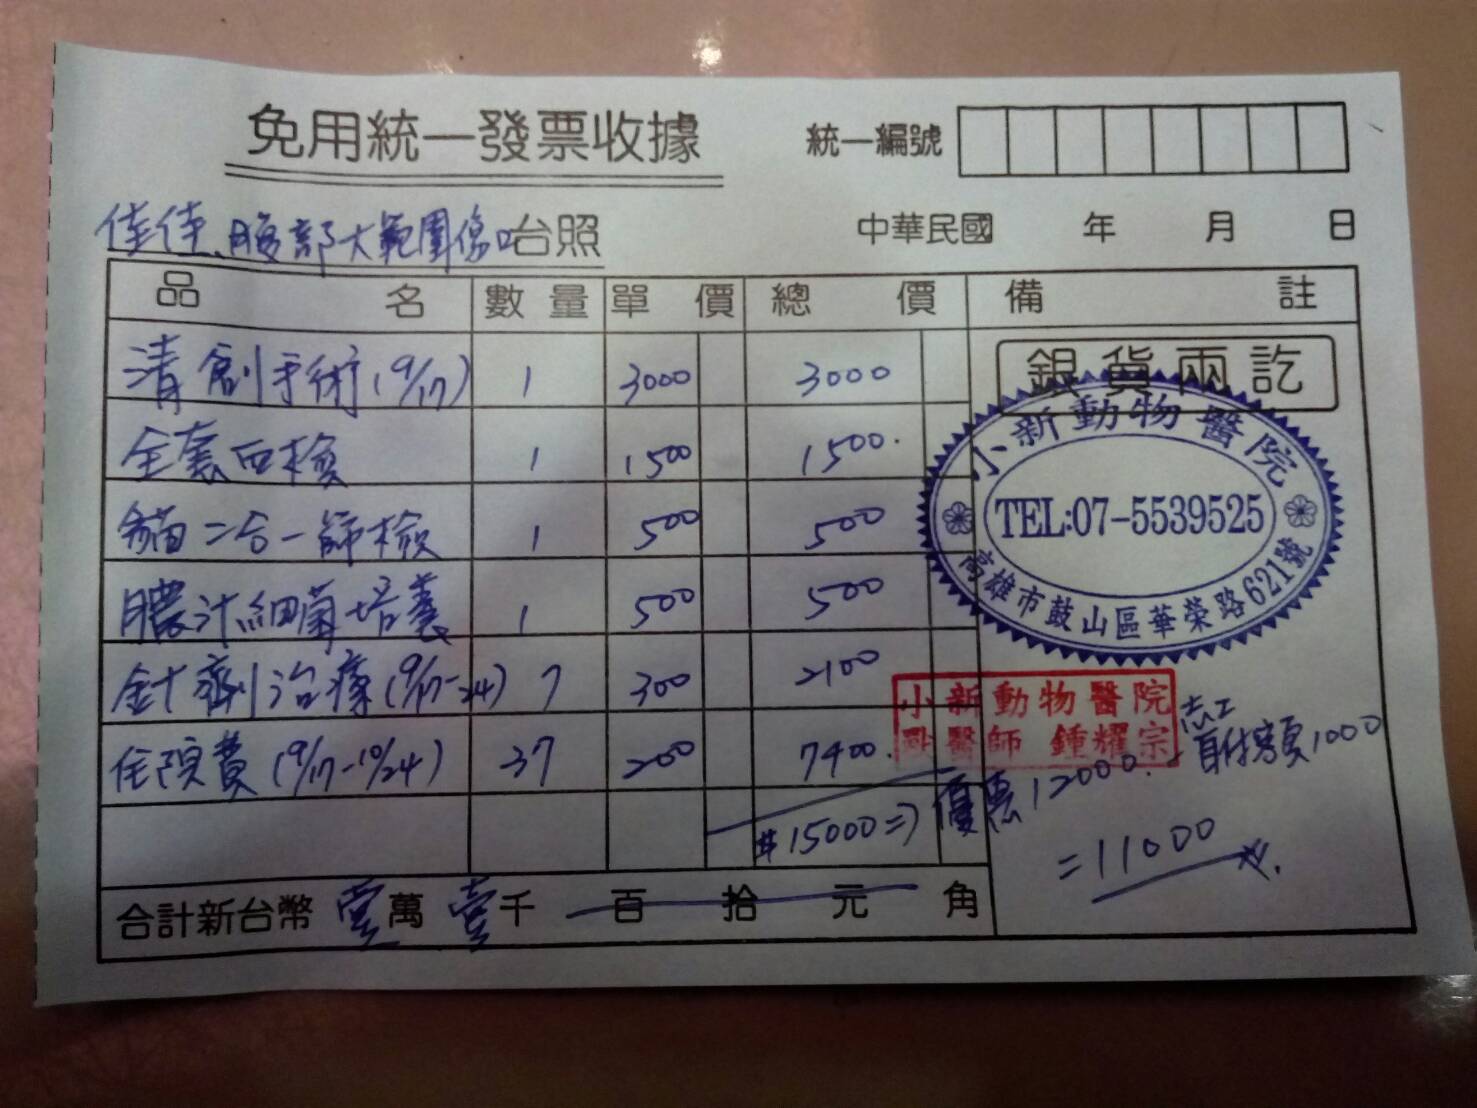 免用統一發票收據
統一編號
佳佳、腹部大範圍傷口台照
中華民國 年 月 日
品名 數量 單價 總價 備註
清創手術(9/17) 1 3000 3000
銀貨兩訖
全套血檢 1 1500 1500.
貓二合一篩檢 1 500 500
膿汁細菌培養 1 500 500
針劑治療(9/17-24) 7 300 2100
住院費(9/17-10/24) 37 200 7400.
小新動物醫院
TEL:07-5539525
高雄市鼓山區華榮路621號
小新動物醫院
獸醫師 鍾耀宗
$15000=> 優惠12000. - 志工自付額1000
=11000
合計新台幣 壹萬 壹千 百 拾 元 角